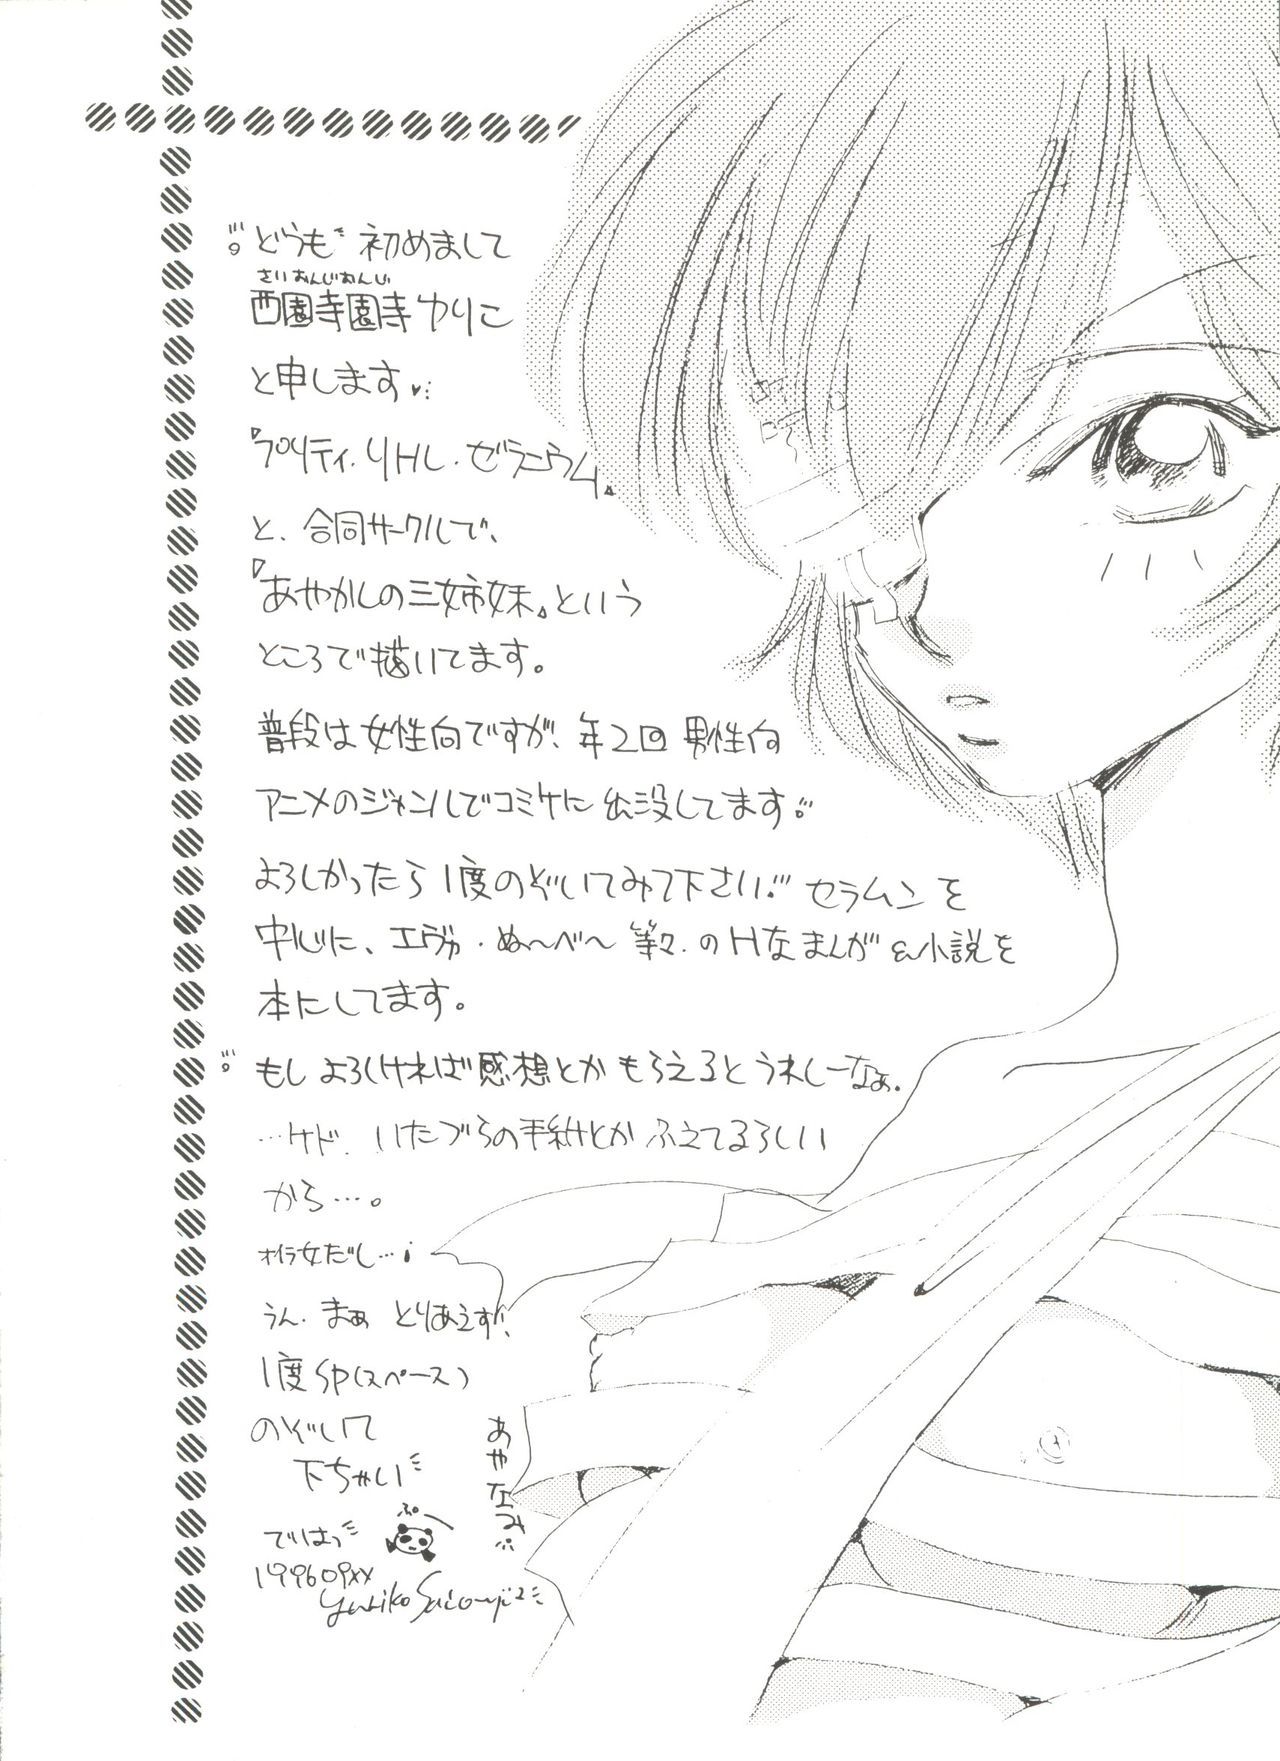 どうも 初めまして
さいおんじおんじ
西園寺園寺ゆりこ
と申します♥
『プリティ・リトル・ゼラニウム』
と、合同サークルで、
『あやかしの三姉妹』という
ところで描いてます。
普段は女性向ですが、年2回 男性向
アニメのジャンルでコミケに出没してます
よろしかったら1度のぞいてみて下さい! セラムンを
中心に、エヴァ・ぬ〜べ〜 等々・のHなまんが&小説を
本にしてます。
もし よろしければ感想とか もらえるとうれしーなぁ。
…ケド、いたづらの手紙とか ふえてるらしい
から…。
オイラ女だし…!
うん・まぁ とりあえず、
1度SP(スペース)
のぞいて
下ちゃい
では
ぷー
あやなみ
199609XX
Yuriko Saionji2